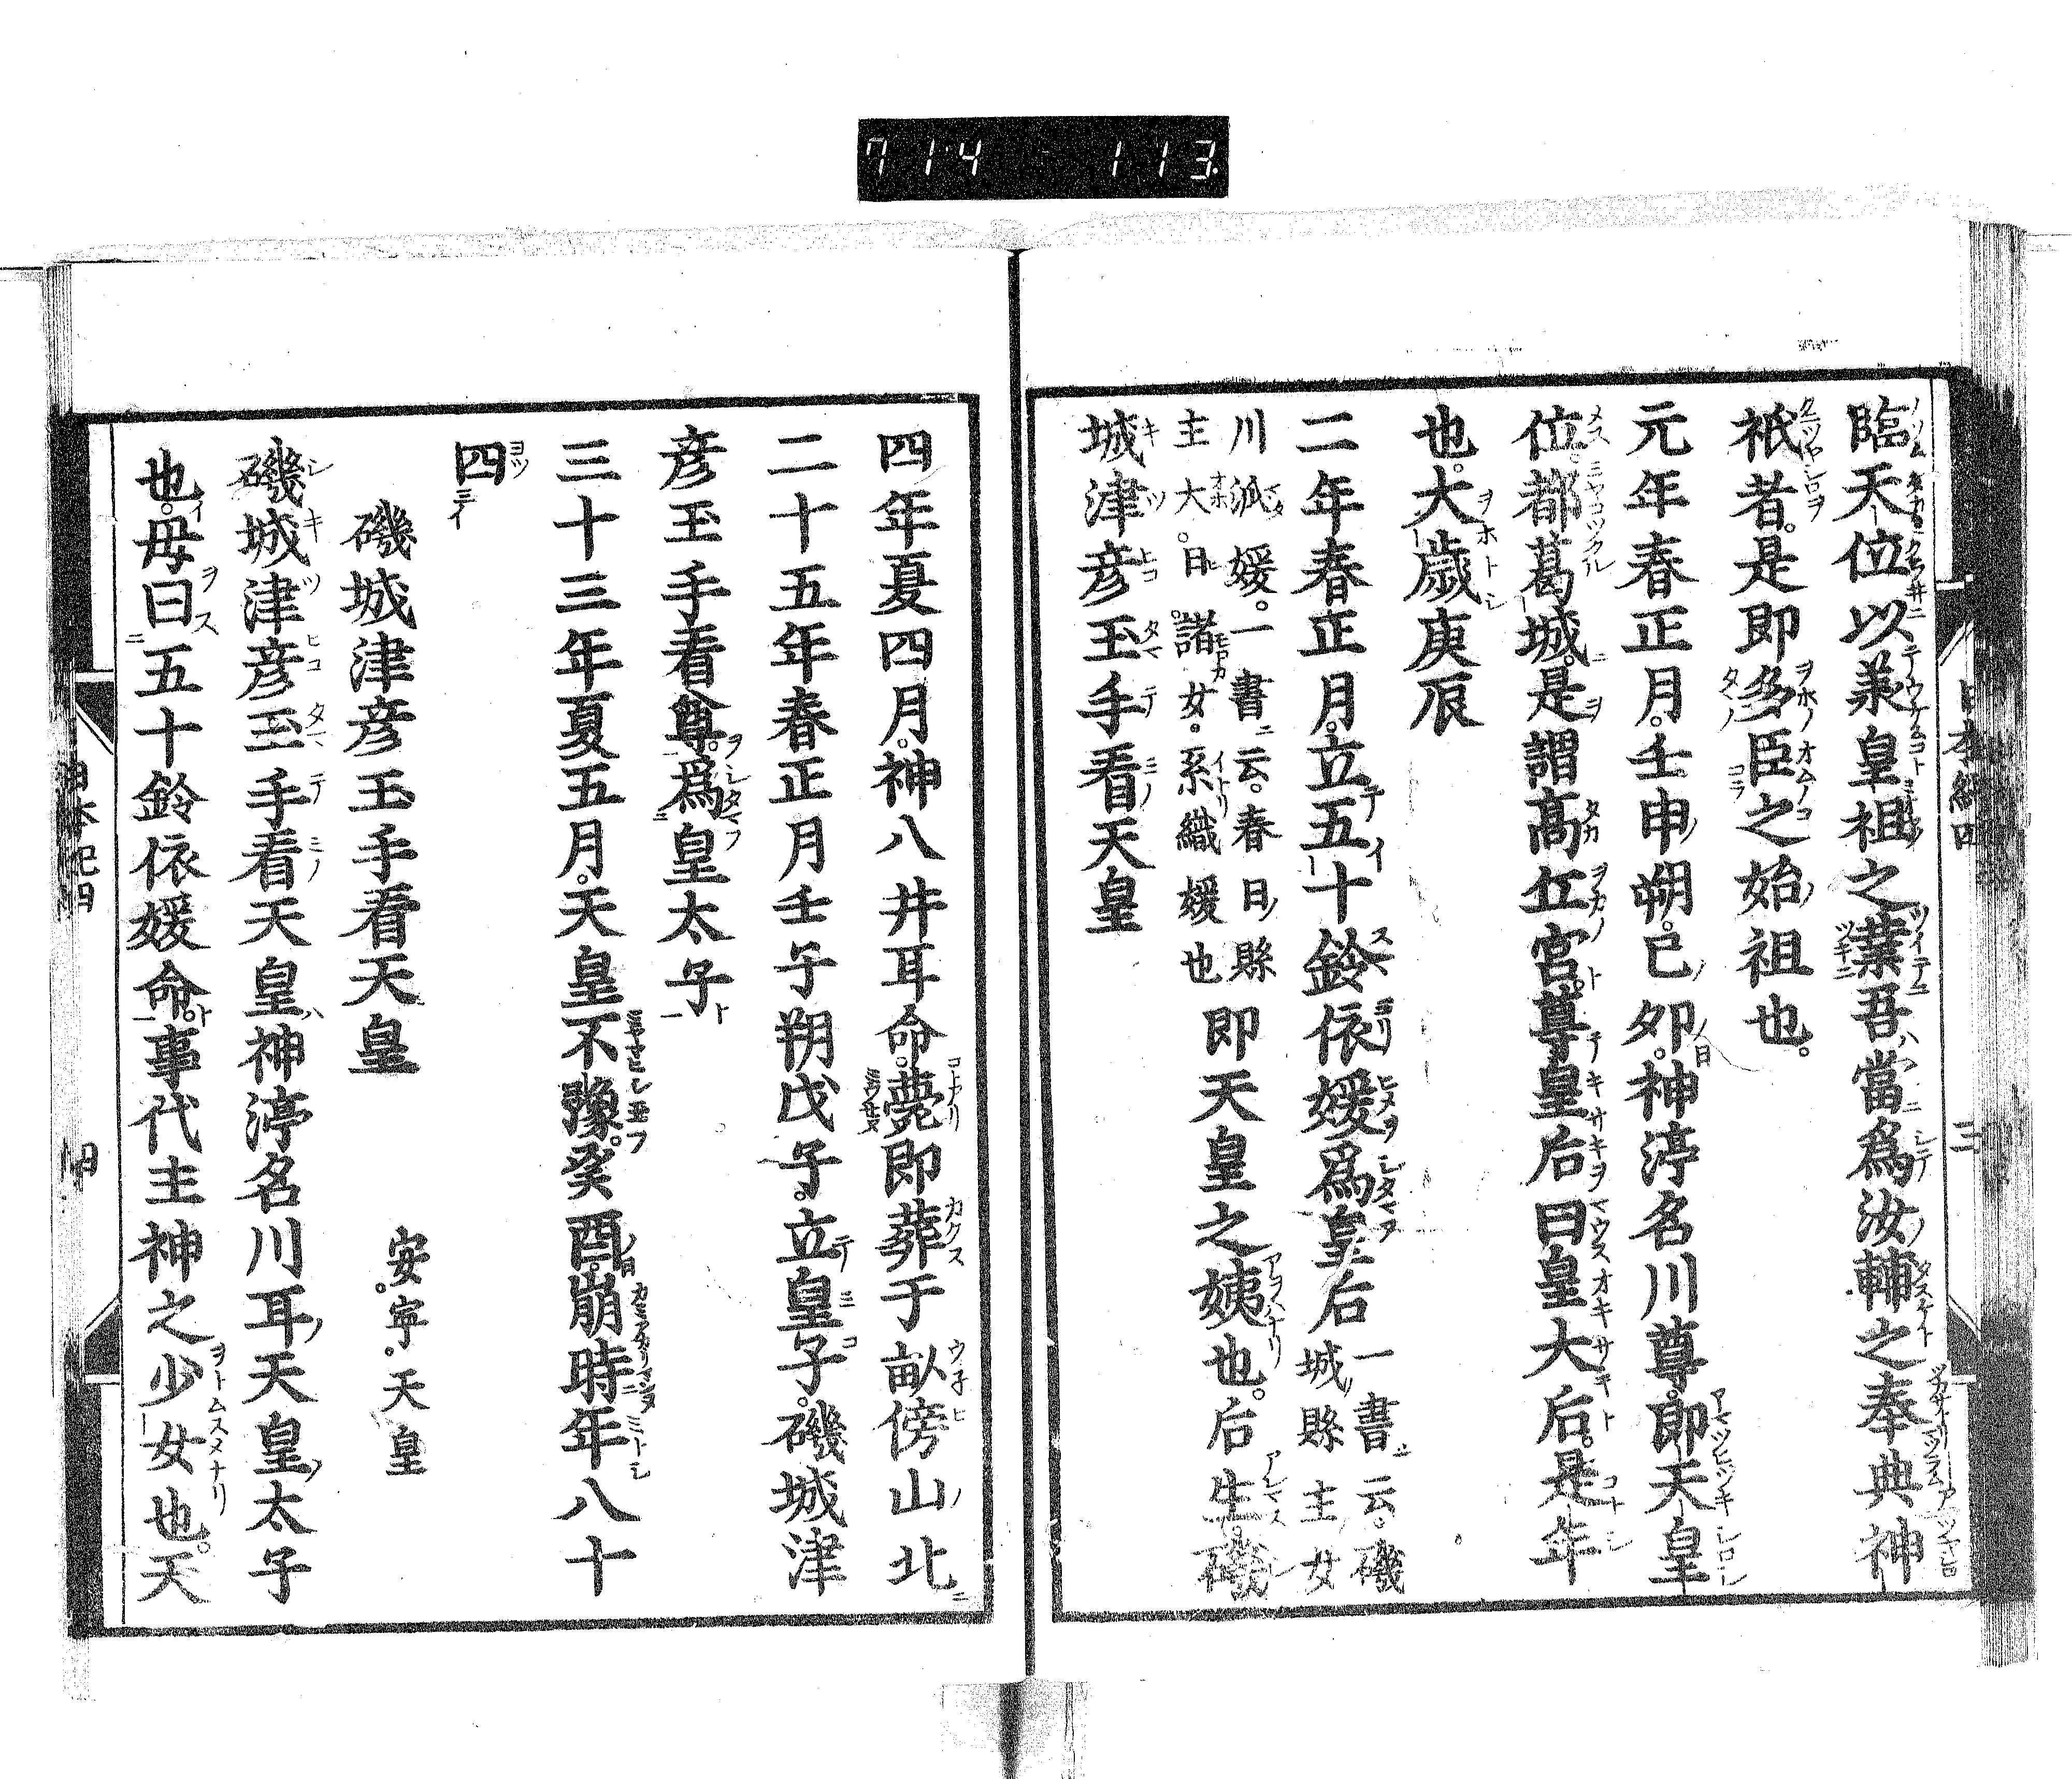 714 113
臨天位以兼皇祖之業吾當爲汝輔之奉典神
祇者。是即多臣之始祖也。
元年春正月。壬申朔。己夘。神渟名川尊。即天皇
位。都葛城。是謂髙丘宮。尊皇后曰皇大后。是年
也。大歳庚辰
二年春正月。立五十鈴依媛爲皇后一書云。磯
城縣主女
川派媛。一書云。春日縣
主大。日。諸女。糸織媛也即天皇之姨也。后生。磯
城津彦玉手看天皇
四年夏四月。神八井耳命。薨即葬于畝傍山北
二十五年春正月壬子朔戊子。立皇子。磯城津
彦玉手看尊。爲皇太子
三十三年夏五月。天皇不豫。癸酉。崩時年八十
四
磯城津彦玉手看天皇 安。寧。天皇
磯城津彦玉手看天皇神渟名川耳天皇太子
也。母曰五十鈴依媛命。事代主神之少女也。天
日本紀四 四